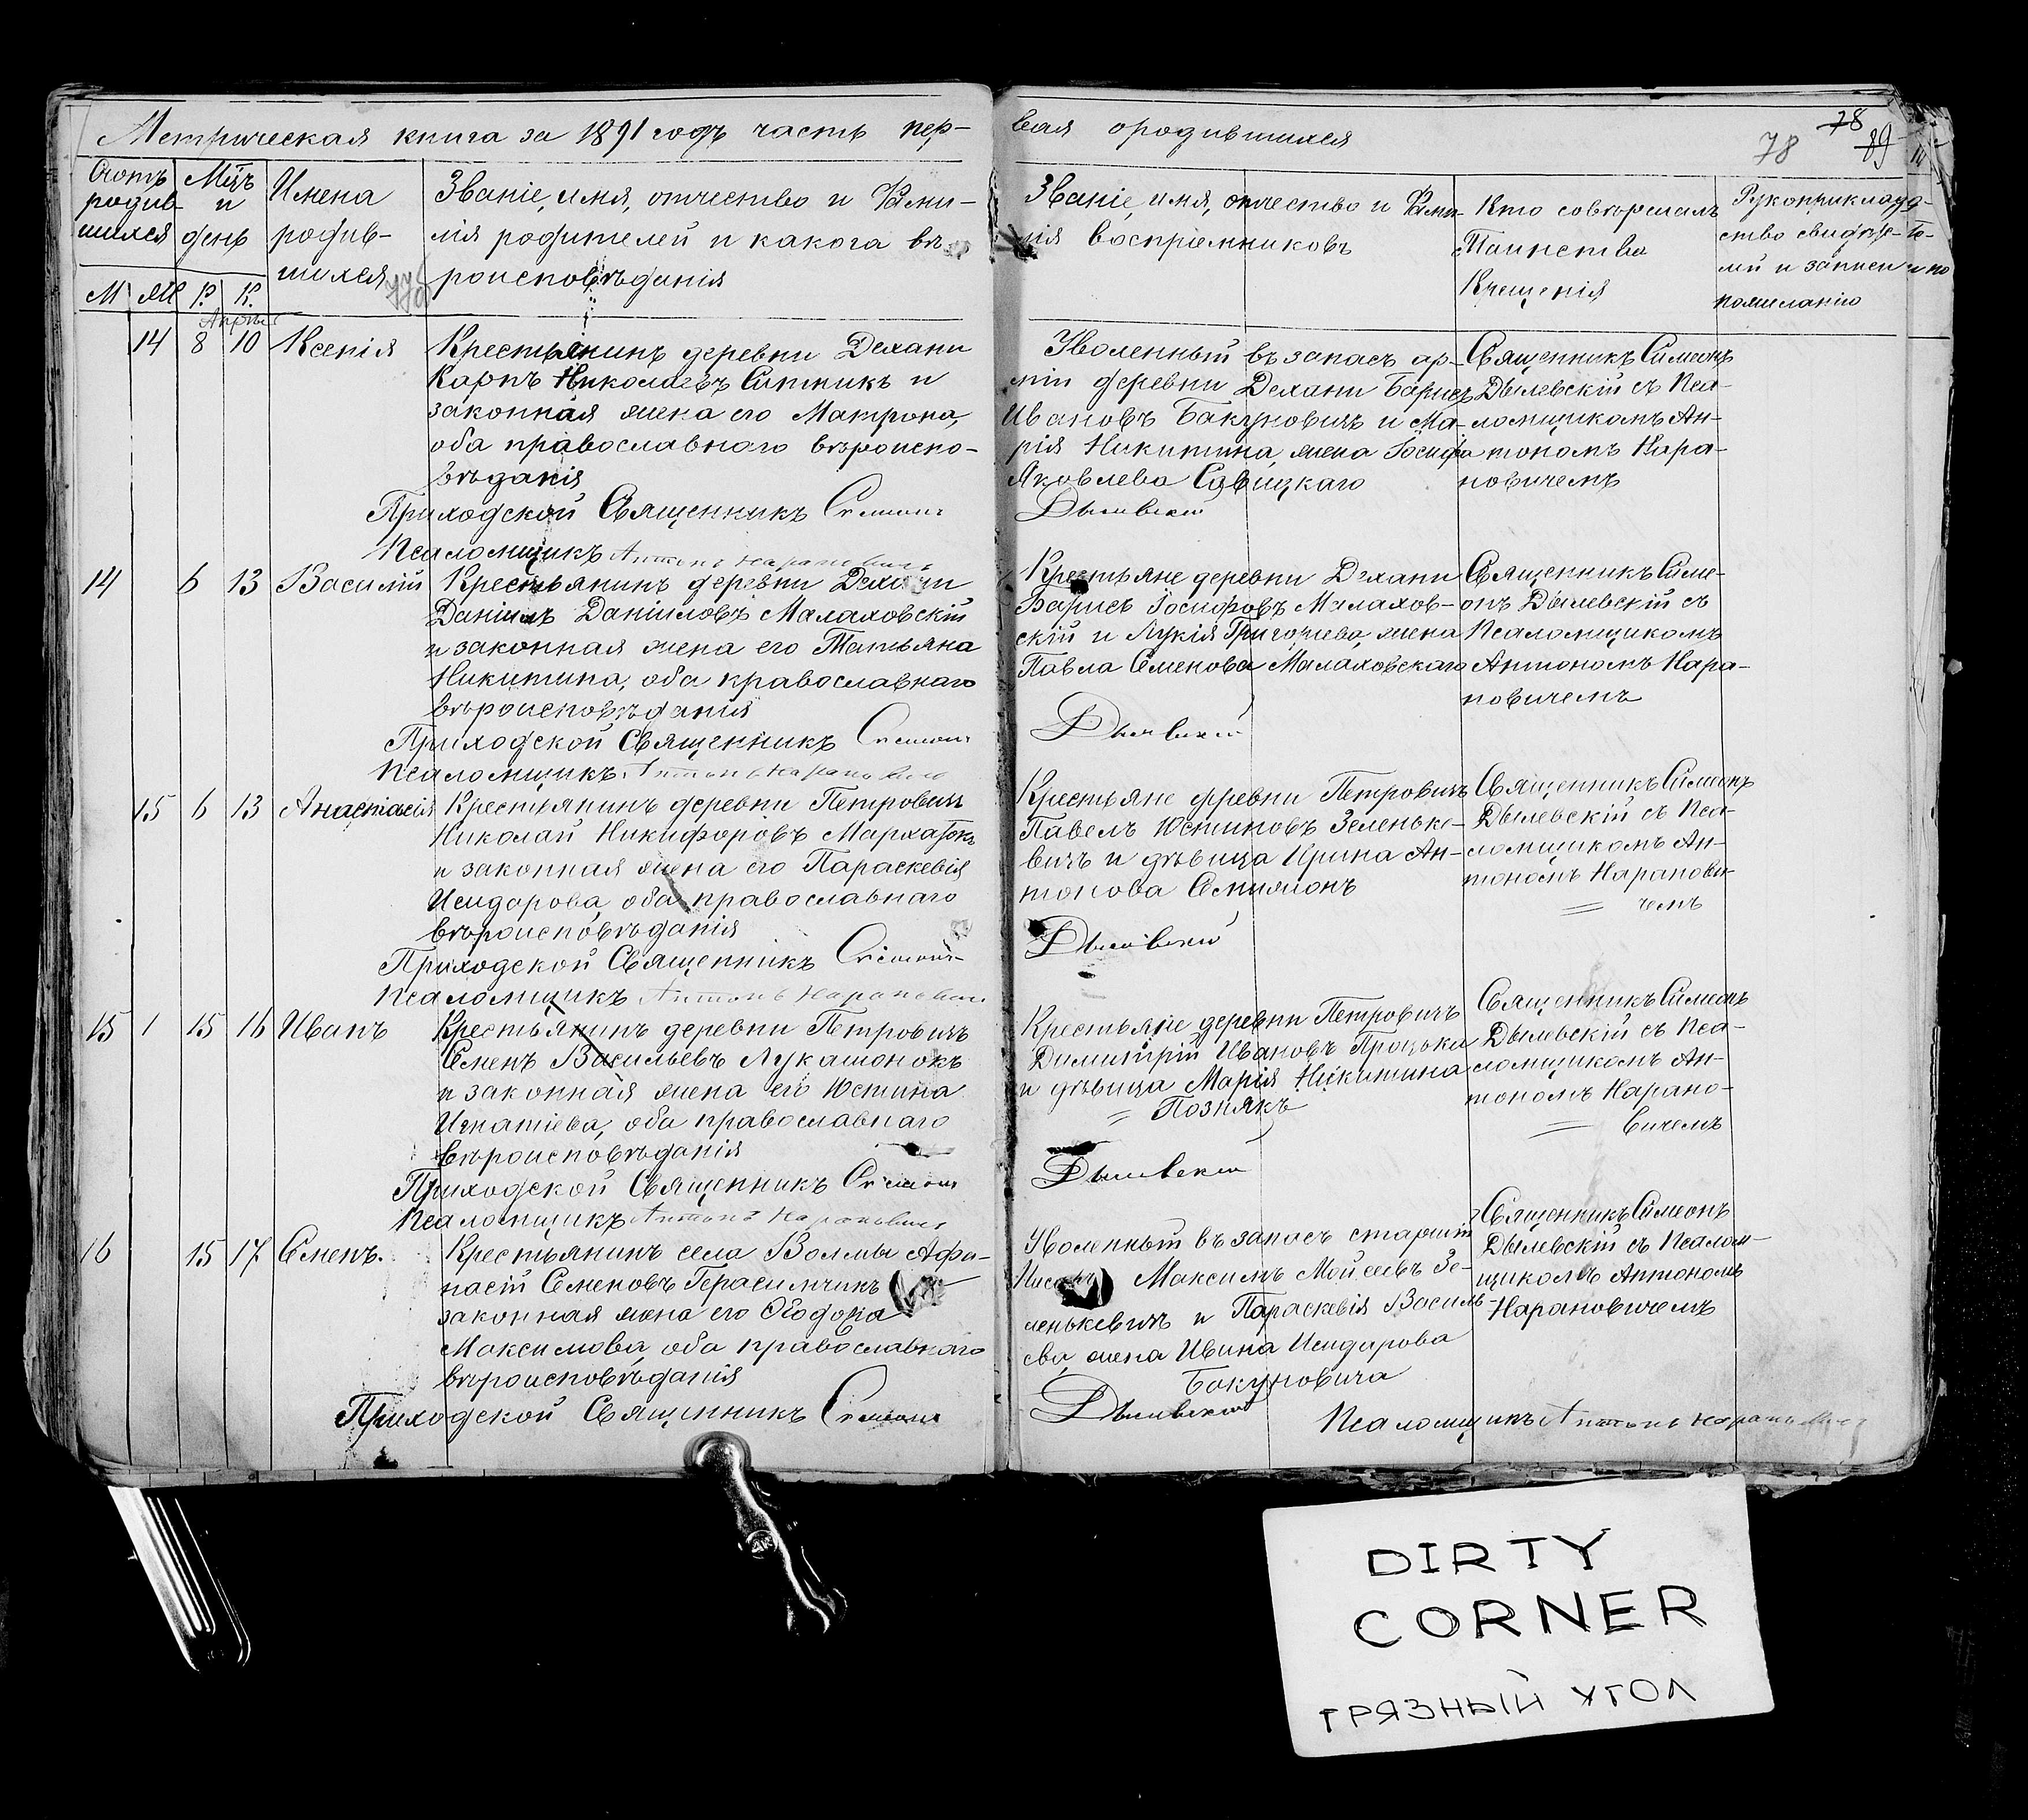 Метрическая книга за 1891 годъ часть пер-
вая о родившихся
78
78
89
Счотъ родив- шихся
Мцъ и день
Имена родив- шихся
Званіе, имя, отчество и Фами-
лія родителей и какога въ-
роисповѣданія
Званіе, имя, отчество и Фами-
лія воспріемниковъ
Кто совѣршалъ
Таинства
Крещенія
Рукоприклад-
ство свидѣте-
лей и записи
по желанію
М Ж Р. К.
Апрѣль
14 8 10 Ксенія
Крестьянинъ деревни Дехани
Карпъ Николаевъ Ситникъ и
законная жена его Матрона,
оба православного вѣроиспо-
вѣданія
Приходской Священникъ Симеонъ
Псаломщикъ Антонъ Нарановичъ
Уволенный въ запасъ ар-
міи деревни Дехани Барисъ
Ивановъ Бакуновичъ и Ма-
рія Никитина, жена Іосифа
Яковлева Савицкаго
Дылевскій
Священникъ Симеонъ
Дылевскій съ Пса-
ломщикомъ Ан-
тономъ Нара-
новичемъ
14 6 13 Василій
Крестьянинъ деревни Дехани
Даніилъ Даніиловъ Малаховскій
и законная жена его Татьяна
Никитина, оба православнаго
вѣроисповѣданія
Приходской Священникъ Симеонъ
Псаломщикъ Антонъ Нарановичъ
Крестьяне деревни Дехани
Барисъ Іосифовъ Малахов-
скій и Лукія Григорьева, жена
Павла Семенова Малаховскаго
Дылевскій
Священникъ Симе-
онъ Дылевскій съ
Псаломщикомъ
Антономъ Нара-
новичемъ
15 6 13 Анастасія
Крестьянинъ деревни Петровичъ
Николай Никифоровъ
и законная жена его Параскевія
Исидорова, оба православнаго
вѣроисповѣданія
Приходской Священникъ Симеонъ
Псаломщикъ Антонъ Нарановичъ
Крестьяне деревни Петровичъ
Павелъ Юстиновъ Зеленьке-
вичъ и дѣвица Ирина Ан-
тонова
Дылевскій
Священникъ Симеонъ
Дылевскій съ Пса-
ломщикомъ Ан-
тономъ Наранови-
= чемъ
15 1 15 16 Иванъ
Крестьянинъ деревни Петровичъ
Семенъ Васильевъ Лукашонокъ
и законная жена его Юстина
Игнатіева, оба православнаго
вѣроисповѣданія
Приходской Священникъ Симеонъ
Псаломщикъ Антонъ Нарановичъ
Крестьяне деревни Петровичъ
Димитрій Ивановъ Процько
и дѣвица Марія Никитина
= Познякъ
Дылевскій
Священникъ Симеонъ
Дылевскій съ Пса-
ломщикомъ Ан-
тономъ Нарано-
= вичемъ
16 15 17 Семенъ.
Крестьянинъ села Волмы Афа-
насій Семеновъ Герасимчикъ
законная жена его Ѳеодора
Максимова, оба православнаго
вѣроисповѣданія
Приходской Священникъ Симеонъ
Уволенный въ запасъ старшій
Писарь Максимъ Мойсеевъ Зе-
ленькевичъ и Параскевія Василь-
ева, жена Ивина Исидарова
Бакуновича
Дылевскій
Священникъ Симеонъ
Дылевскій съ Псалом-
щикомъ Антономъ
Нарановичемъ
Псаломщикъ Антонъ Нарановичъ
DIRTY
CORNER
ГРЯЗНЫЙ УГОЛ